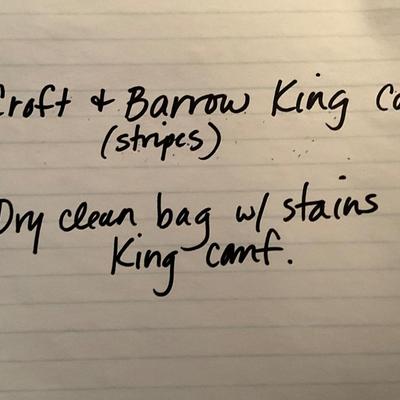 Croft + Barrow King Co
(stripes)
Dry clean bag w/ stains
King comf.